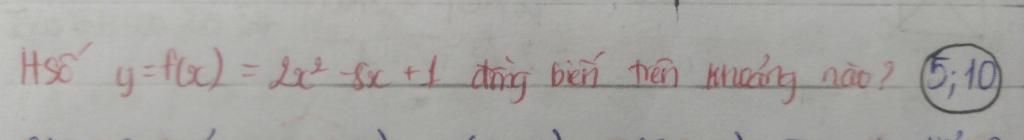 Hsố y = f(x) = 2x² - 5x + 1 đồng biến trên khoảng nào? 5; 10